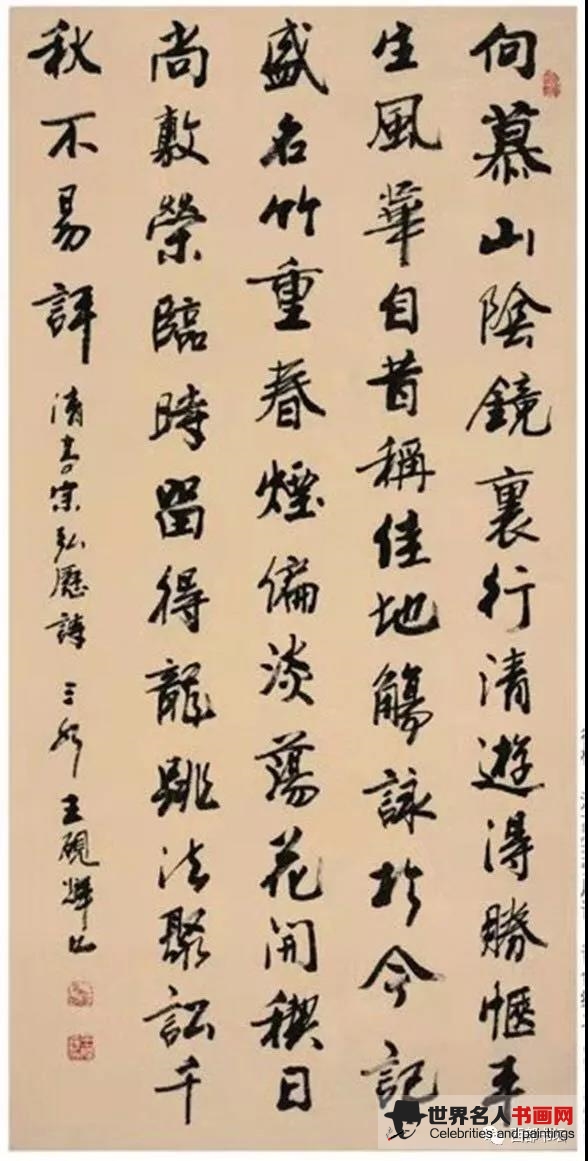 向慕山陰鏡裏行清遊得勝愜平
生風華自昔稱佳地觴詠於今記
盛名竹重春煙偏淡蕩花開稧日
尚敷榮臨時留得龍跳法聚訟千
秋不易評
清高宗弘曆詩 王硯輝書
世界名人书画网
Celebrities and paintings